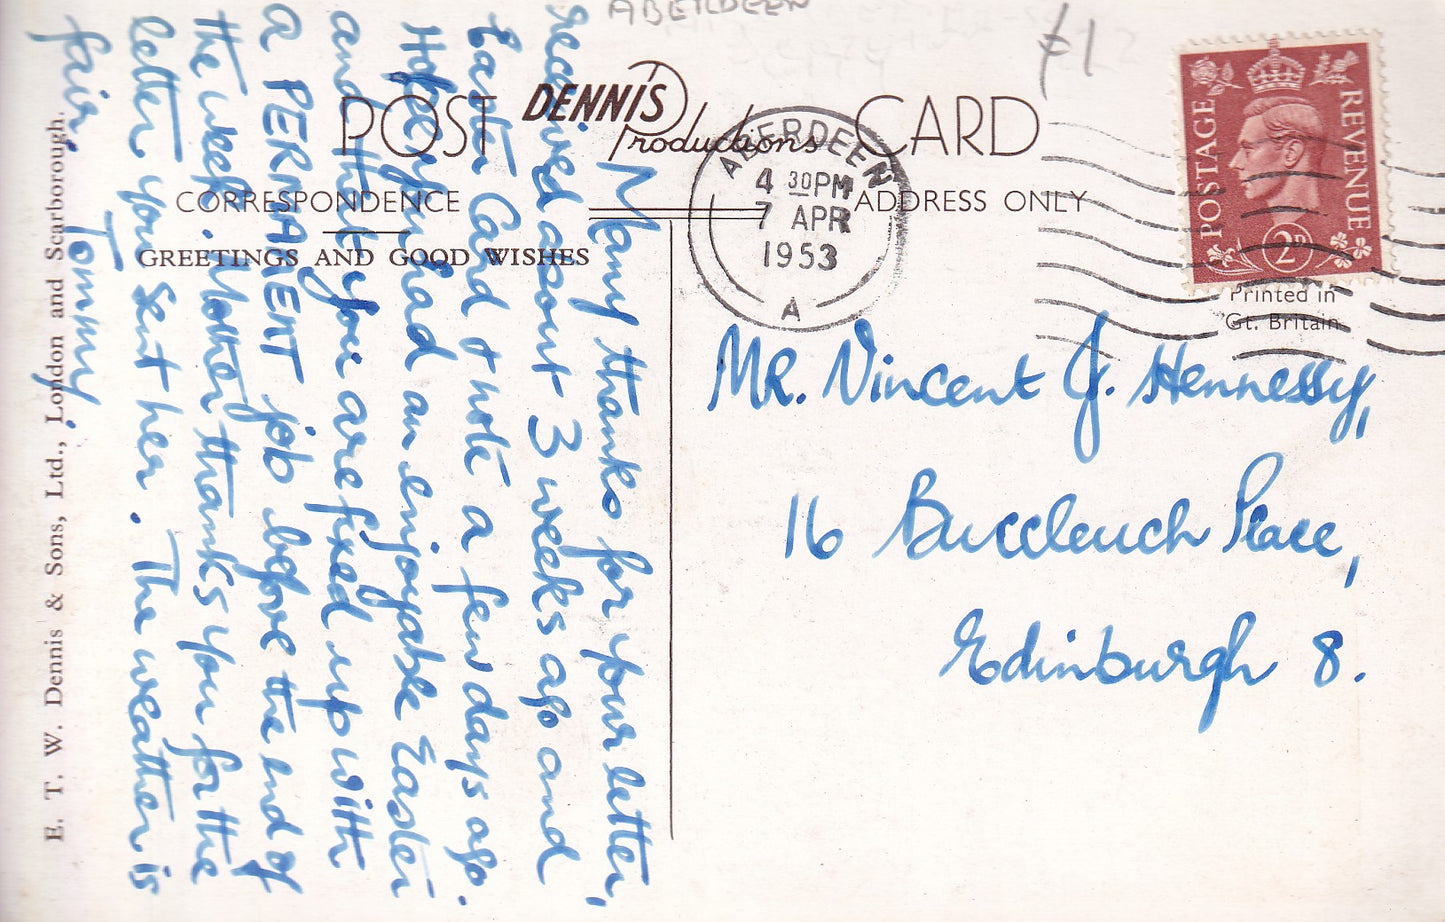 ABERDEEN
£1
POST DENNIS Productions CARD
CORRESPONDENCE
ADDRESS ONLY
GREETINGS AND GOOD WISHES
ABERDEEN
4 30PM
7 APR
1953
A
POSTAGE REVENUE
2D
Printed in
Gt. Britain
Many thanks for your letter,
received about 3 weeks ago and
Easter Card & note a few days ago.
Hope you had an enjoyable Easter
and that you are fixed up with
a PERMANENT job before the end of
the week. Mother thanks you for the
letter you sent her. The weather is
fair.
Tommy.
Mr. Vincent J. Hennessy,
16 Buccleuch Place,
Edinburgh 8.
E. T. W. Dennis & Sons, Ltd., London and Scarborough.